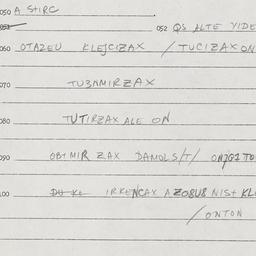 050 A STIRC
051
052 QS ALTE VIDE
060 OTAZEU KLEJCIZAX /TUCIZAXON
070 TUZNMIRZAX
080 TUTIRZAX ALE ON
090 OBTMIR ZAX DAMOLS/T/
100 IRKENCAX AZOBUB NIST KL
/ONTON